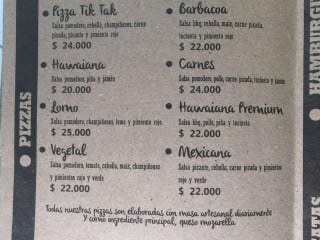 PIZZAS
Pizza Tik Tak
Salsa pomodoro, cebolla, champiñones, carne
picada, picante y pimiento rojo
$ 24.000
Hawaiana
Salsa pomodoro, piña y jamón
$ 20.000
Lomo
Salsa pomodoro, champiñones, lomo y pimiento rojo
$ 25.000
Vegetal
Salsa pomodoro, tomate, cebolla, maiz, champiñones
y pimiento rojo
$ 22.000
Barbacoa
Salsa bbq, cebolla, maiz, carne picada,
tocineta y pimiento rojo
$ 22.000
Carnes
Salsa pomodoro, pollo, carne picada, tocineta y jamón
$ 24.000
Hawaiana Premium
Salsa bbq, pollo, piña y tocineta
$ 22.000
Mexicana
Salsa picante, cebolla, carne picada y pimientos
rojo y verde
$ 22.000
Todas nuestras pizzas son elaboradas con masa artesanal diariamente
y como ingrediente principal, queso mozarella
HAMBURGU